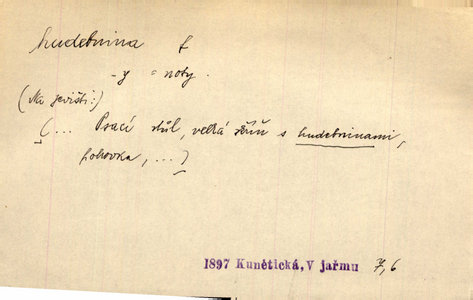 hudebnina f
-y = noty.
(Na jevišti:)
(... Psací stůl, velká skříň s hudebninami,
pohovka, ...)
1897 Kunětická, V jařmu 7, 6